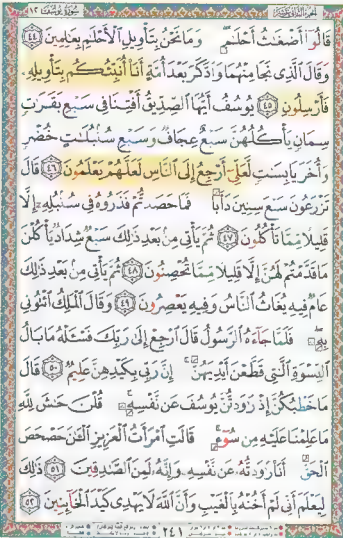 الجزء الثانی عشر سورة یوسف ١٢
قَالُوٓا۟ أَضْغَٰثُ أَحْلَٰمٍ وَمَا نَحْنُ بِتَأْوِيلِ ٱلْأَحْلَٰمِ بِعَٰلِمِينَ ٤٤
وَقَالَ ٱلَّذِى نَجَا مِنْهُمَا وَٱدَّكَرَ بَعْدَ أُمَّةٍ أَنَا۠ أُنَبِّئُكُم بِتَأْوِيلِهِۦ
فَأَرْسِلُونِ ٤٥ يُوسُفُ أَيُّهَا ٱلصِّدِّيقُ أَفْتِنَا فِى سَبْعِ بَقَرَٰتٍ
سِمَانٍ يَأْكُلُهُنَّ سَبْعٌ عِجَافٌ وَسَبْعِ سُنۢبُلَٰتٍ خُضْرٍ
وَأُخَرَ يَابِسَٰتٍ لَّعَلِّىٓ أَرْجِعُ إِلَى ٱلنَّاسِ لَعَلَّهُمْ يَعْلَمُونَ ٤٦ قَالَ
تَزْرَعُونَ سَبْعَ سِنِينَ دَأَبًا فَمَا حَصَدتُّمْ فَذَرُوهُ فِى سُنۢبُلِهِۦٓ إِلَّا
قَلِيلًا مِّمَّا تَأْكُلُونَ ٤٧ ثُمَّ يَأْتِى مِنۢ بَعْدِ ذَٰلِكَ سَبْعٌ شِدَادٌ يَأْكُلْنَ
مَا قَدَّمْتُمْ لَهُنَّ إِلَّا قَلِيلًا مِّمَّا تُحْصِنُونَ ٤٨ ثُمَّ يَأْتِى مِنۢ بَعْدِ ذَٰلِكَ
عَامٌ فِيهِ يُغَاثُ ٱلنَّاسُ وَفِيهِ يَعْصِرُونَ ٤٩ وَقَالَ ٱلْمَلِكُ ٱئْتُونِى
بِهِۦ فَلَمَّا جَآءَهُ ٱلرَّسُولُ قَالَ ٱرْجِعْ إِلَىٰ رَبِّكَ فَسْـَٔلْهُ مَا بَالُ
ٱلنِّسْوَةِ ٱلَّٰتِى قَطَّعْنَ أَيْدِيَهُنَّ إِنَّ رَبِّى بِكَيْدِهِنَّ عَلِيمٌ ٥٠ قَالَ
مَا خَطْبُكُنَّ إِذْ رَٰوَدتُّنَّ يُوسُفَ عَن نَّفْسِهِۦ قُلْنَ حَٰشَ لِلَّهِ
مَا عَلِمْنَا عَلَيْهِ مِن سُوٓءٍ قَالَتِ ٱمْرَأَتُ ٱلْعَزِيزِ ٱلْـَٰٔنَ حَصْحَصَ
ٱلْحَقُّ أَنَا۠ رَٰوَدتُّهُۥ عَن نَّفْسِهِۦ وَإِنَّهُۥ لَمِنَ ٱلصَّٰدِقِينَ ٥١ ذَٰلِكَ
لِيَعْلَمَ أَنِّى لَمْ أَخُنْهُ بِٱلْغَيْبِ وَأَنَّ ٱللَّهَ لَا يَهْدِى كَيْدَ ٱلْخَآئِنِينَ ٥٢
٢٤١